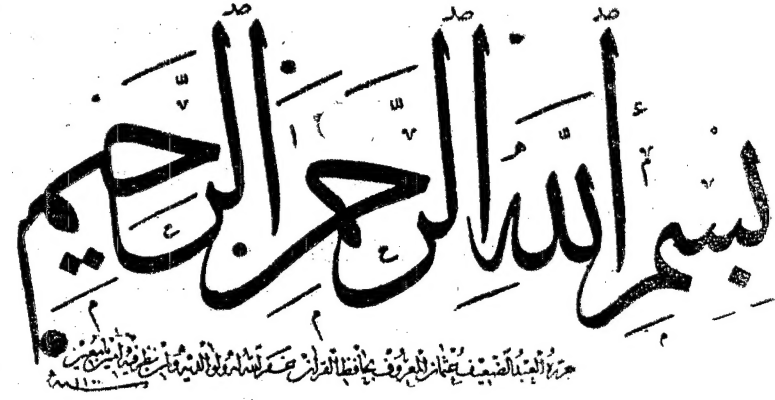 بِسْمِ ٱللَّهِ ٱلرَّحْمٰنِ ٱلرَّحِيمِ
حرره العبد الضعيف عثمان المعروف بحافظ القرآن غفر الله له ولوالديه نظر فيه آمين